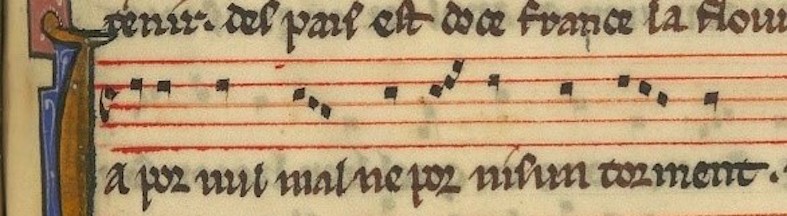 tenir. del païs est doce france la flour
Ja por nul mal ne por nisun torment.